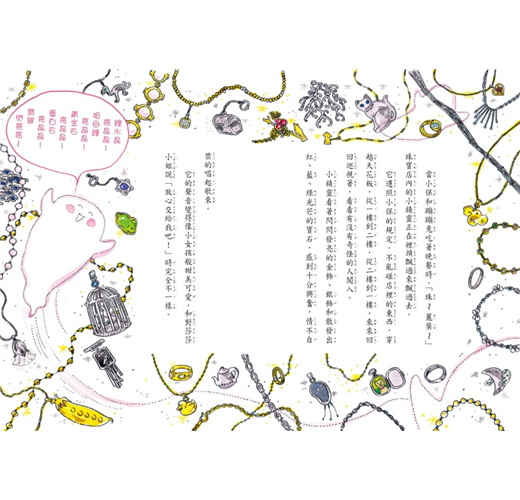 當小保和蹦蹦兔吃著晚餐時,「珠~麗葉~」
珠寶店內的小精靈正在裡頭飄過來飄過去。
它遵照小保的規定,不能碰店裡的東西,穿
越天花板,從一樓到二樓,從二樓到一樓,來來回
回巡視著,看看有沒有奇怪的人闖入。
小精靈看著閃閃發亮的金飾、銀飾和散發出
紅、藍、綠光芒的寶石,感到十分興奮,情不自
禁的唱起歌來。
它的聲音變得像小女孩般甜美可愛,和對莎莎
小姐說「放心交給我吧!」時完全不一樣。
水晶
亮晶晶~
祖母綠
亮晶晶~
金石
亮晶晶~
蛋白石
亮晶晶~
翡翠
閃亮亮~